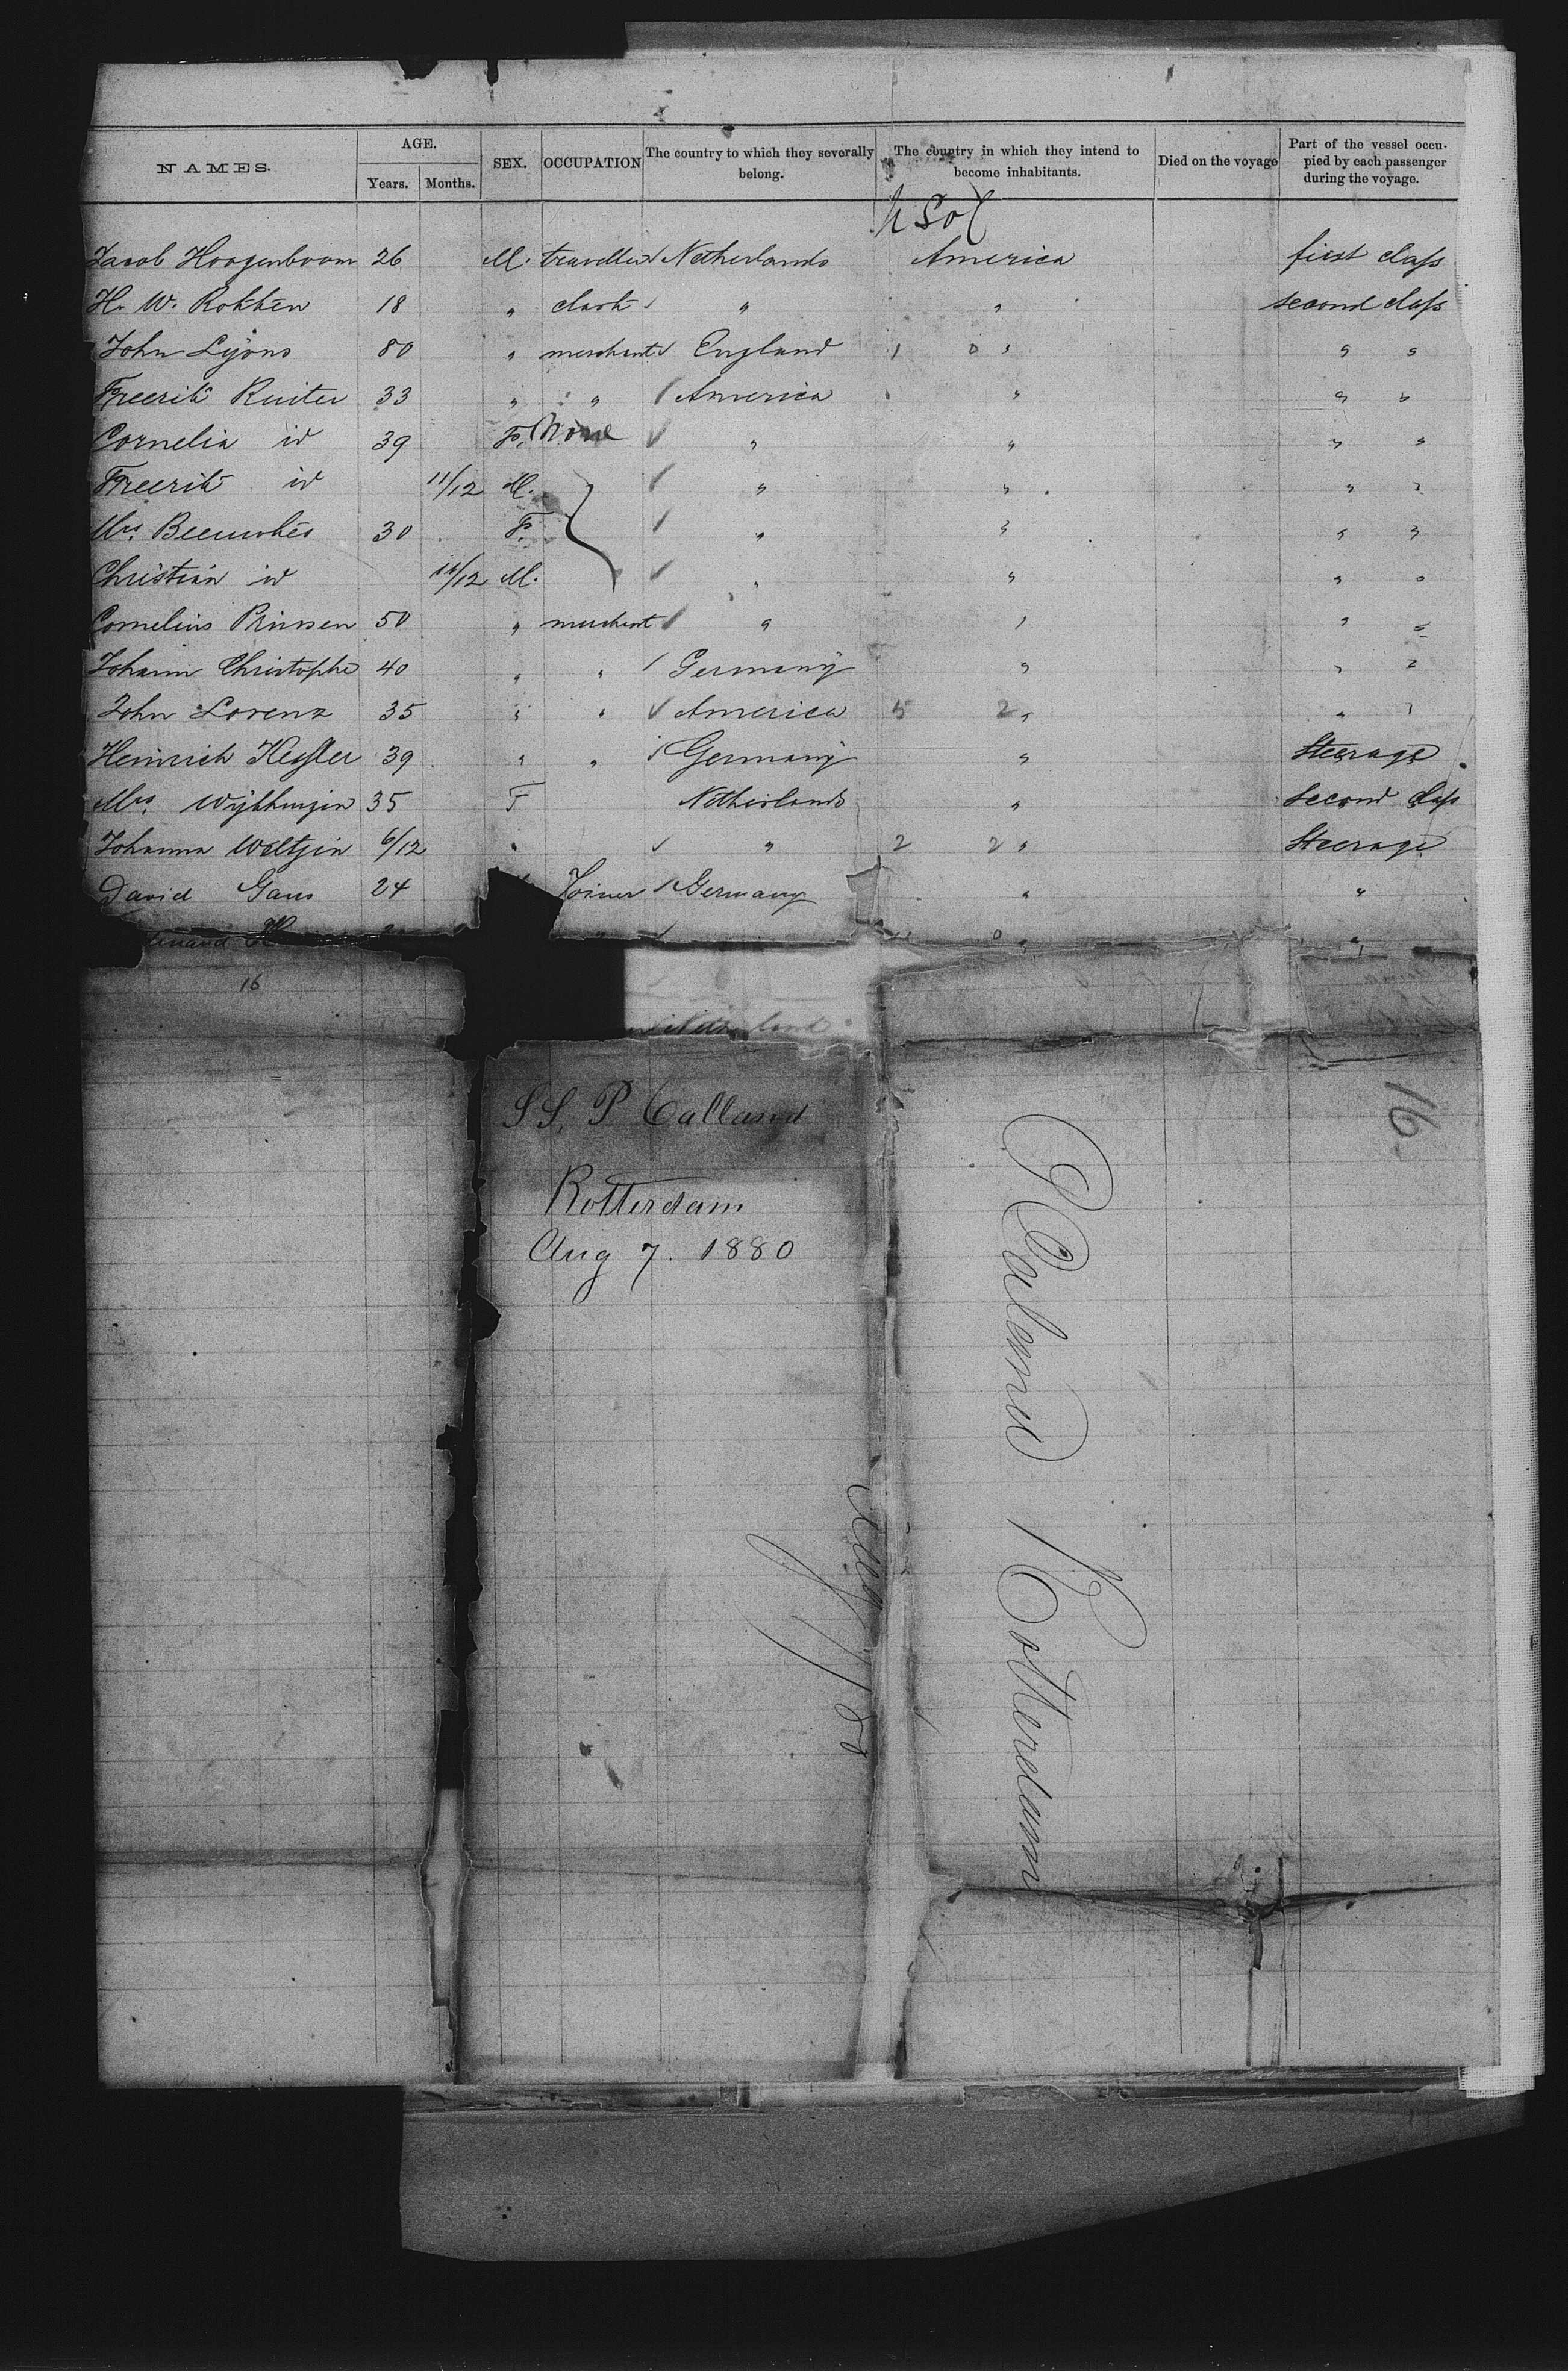 NAMES. AGE. Years. Months. SEX. OCCUPATION The country to which they severally belong. The country in which they intend to become inhabitants. Died on the voyage Part of the vessel occupied by each passenger during the voyage.
Jacob Hoogenboom 26 M. traveller Netherlands America first class
H. W. Rokken 18 " clark " " second class
John Lyons 80 " merchant England 1 0 " " "
Freerik Ruiter 33 " " America " " "
Cornelia id 39 F. None " " " "
Freerik id 11/12 M. " " " "
Mrs. 30 F. " " " "
Christian id 11/12 M. " " " "
Cornelius Prinsen 50 " merchant " " " "
Johann Christophe 40 " " Germany " " "
John Lorenz 35 " " America 5 2 " " "
Heinrich Kessler 39 " " Germany " Steerage
Mrs. 35 F Netherlands " second class
Johanna Weltjin 6/12 " " 2 2 " Steerage
David Gans 24 Joiner Germany " "
16
Netherland
SS. P Calland
Rotterdam
Aug 7. 1880
P Caland Rotterdam
Aug 7 / 80
16